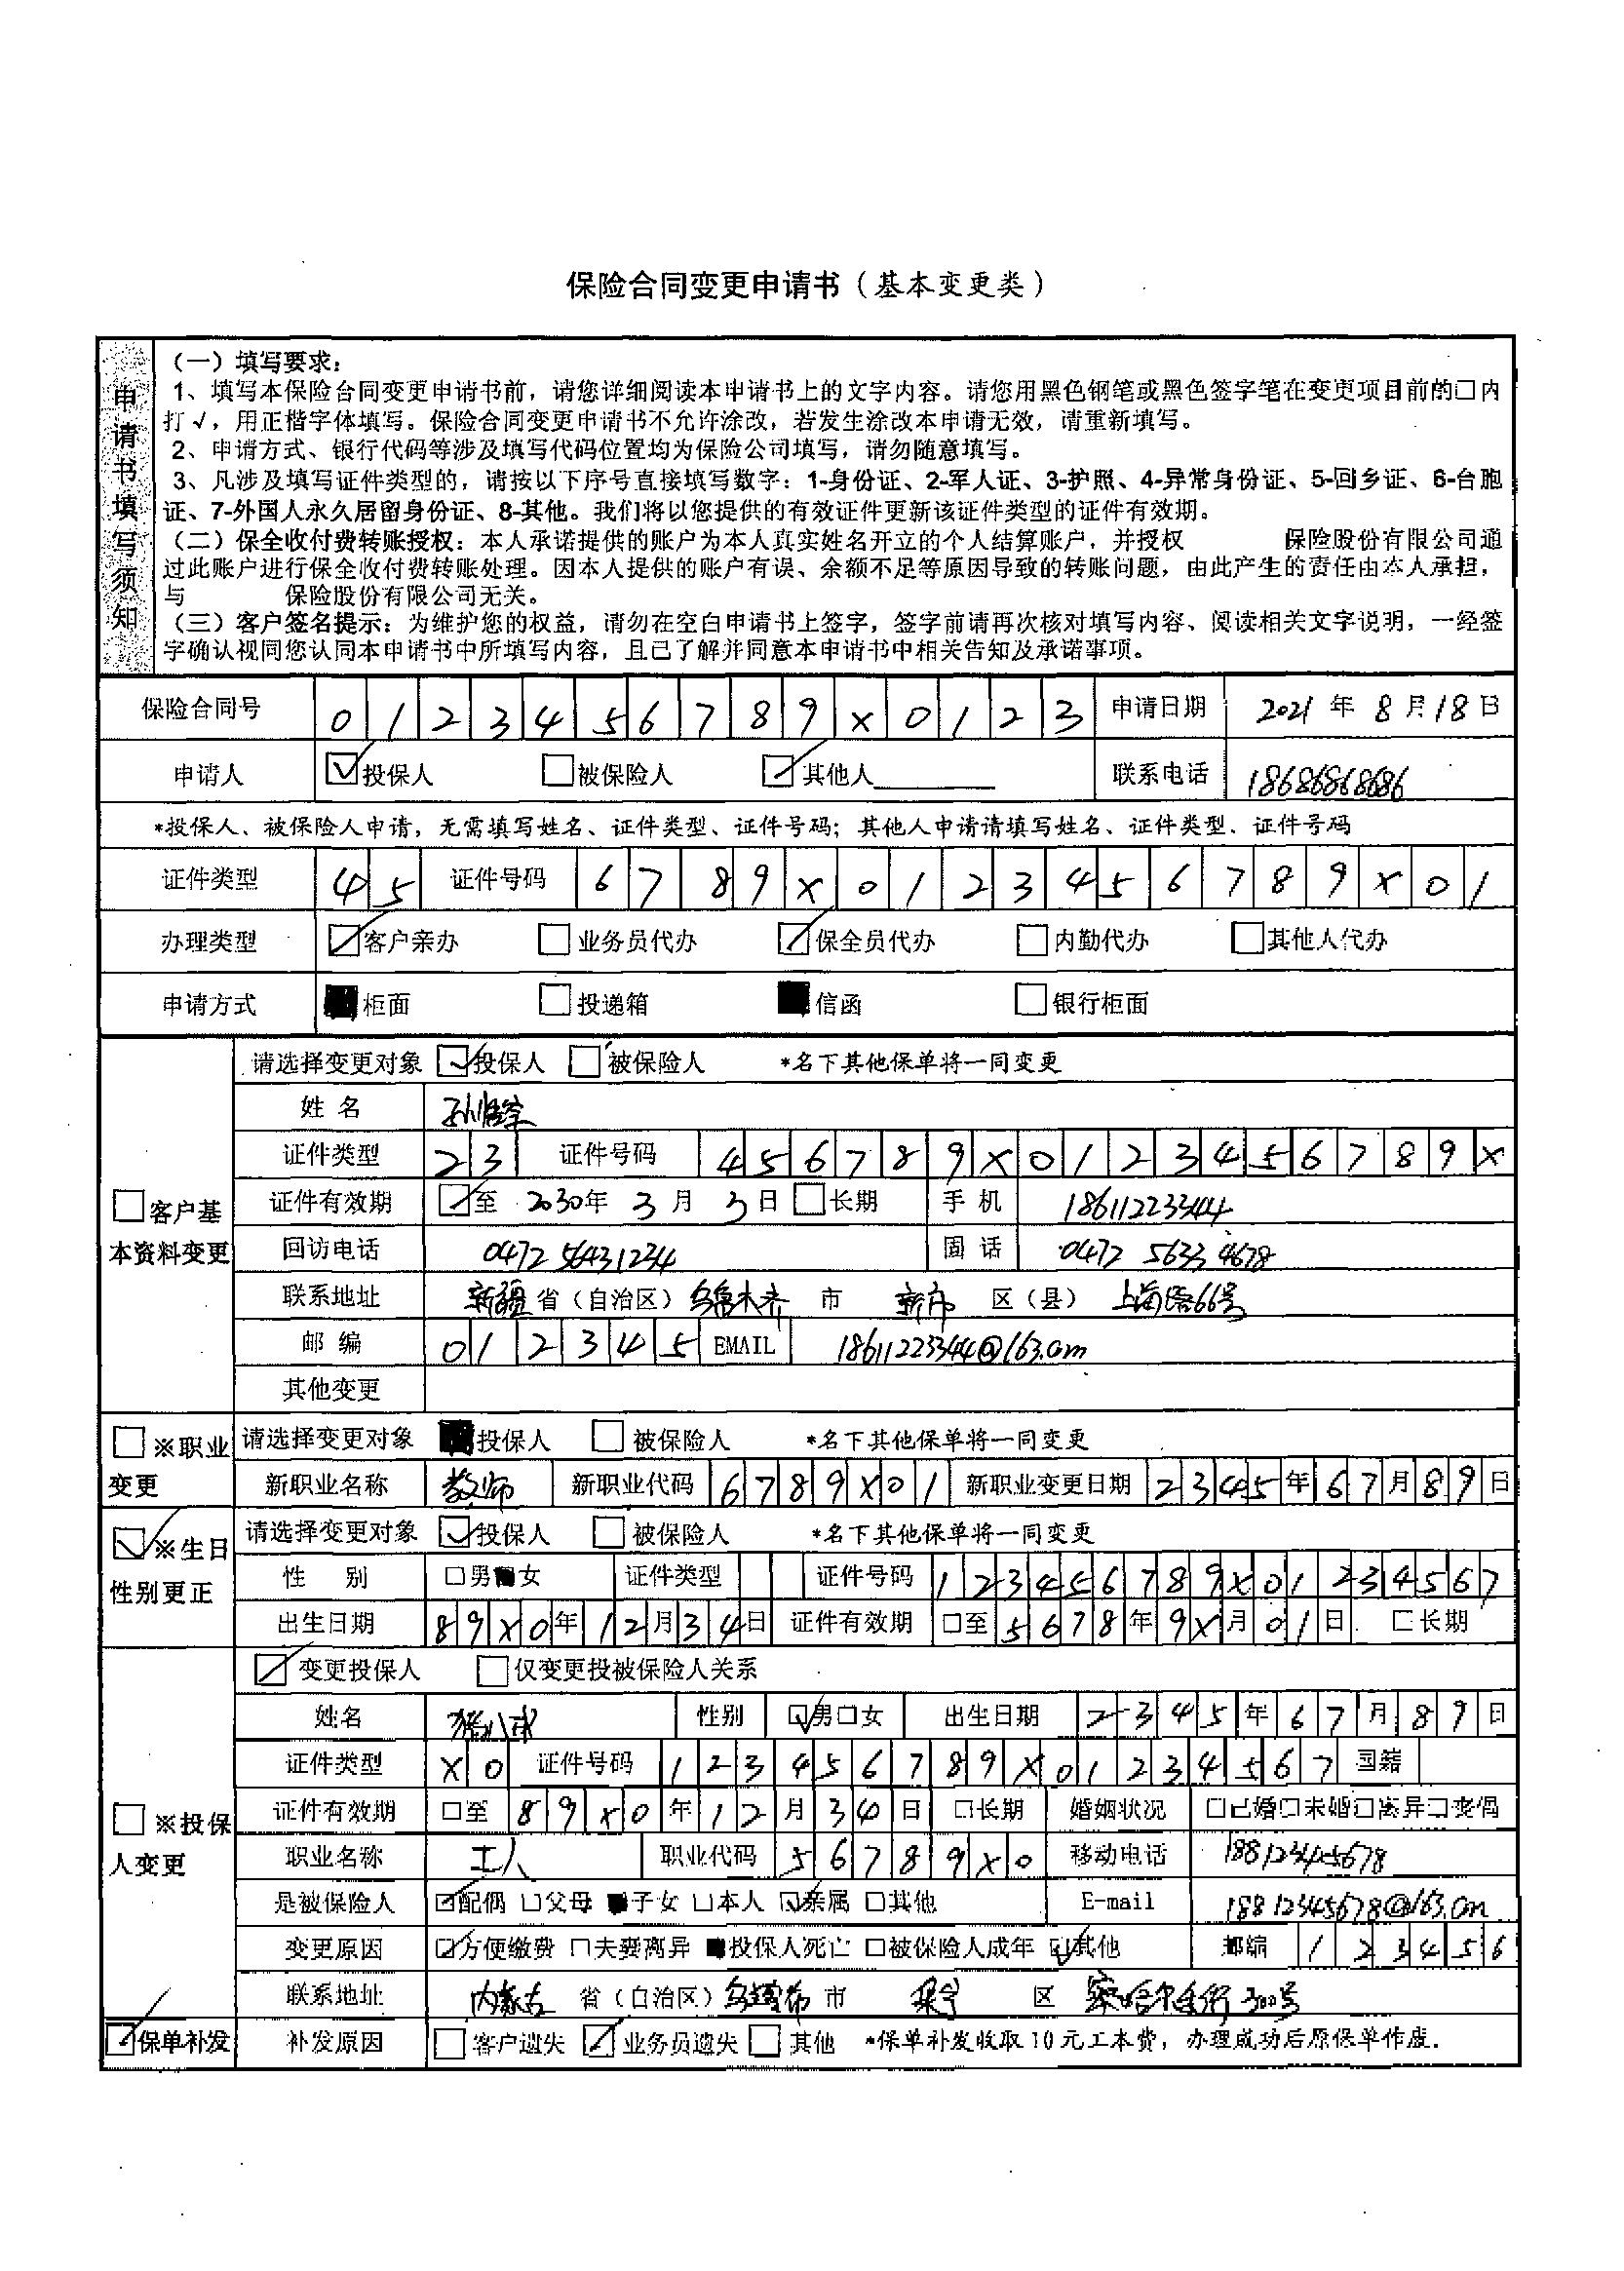 保险合同变更申请书（基本变更类）
申请书填写须知
（一）填写要求：
1、填写本保险合同变更申请书前，请您详细阅读本申请书上的文字内容。请您用黑色钢笔或黑色签字笔在变更项目前的□内
打√，用正楷字体填写。保险合同变更申请书不允许涂改，若发生涂改本申请无效，请重新填写。
2、申请方式、银行代码等涉及填写代码位置均为保险公司填写，请勿随意填写。
3、凡涉及填写证件类型的，请按以下序号直接填写数字：1-身份证、2-军人证、3-护照、4-异常身份证、5-回乡证、6-台胞
证、7-外国人永久居留身份证、8-其他。我们将以您提供的有效证件更新该证件类型的证件有效期。
（二）保全收付费转账授权：本人承诺提供的账户为本人真实姓名开立的个人结算账户，并授权 保险股份有限公司通
过此账户进行保全收付费转账处理。因本人提供的账户有误、余额不足等原因导致的转账问题，由此产生的责任由本人承担，
与 保险股份有限公司无关。
（三）客户签名提示：为维护您的权益，请勿在空白申请书上签字，签字前请再次核对填写内容、阅读相关文字说明，一经签
字确认视同您认同本申请书中所填写内容，且已了解并同意本申请书中相关告知及承诺事项。
保险合同号 0123456789X0123 申请日期 2021年8月18日
申请人 ☑投保人 □被保险人 ☑其他人 联系电话 18686868686
*投保人、被保险人申请，无需填写姓名、证件类型、证件号码；其他人申请请填写姓名、证件类型、证件号码
证件类型 45 证件号码 6789X0123456789X01
办理类型 ☑客户亲办 □业务员代办 ☑保全员代办 □内勤代办 □其他人代办
申请方式 ■柜面 □投递箱 ■信函 □银行柜面
□客户基本资料变更
请选择变更对象 ☑投保人 □被保险人 *名下其他保单将一同变更
姓名
证件类型 23 证件号码 456789X0123456789X
证件有效期 ☑至 2030年3月3日 □长期 手机 18611223344
回访电话 0472 56431234 固话 0472 5633 4678
联系地址 新疆省（自治区）乌鲁木齐市 新市区（县） 上海路66号
邮编 012345 EMAIL 18611223344@163.com
其他变更
□※职业变更
请选择变更对象 ■投保人 □被保险人 *名下其他保单将一同变更
新职业名称 教师 新职业代码 6789X01 新职业变更日期 2345年67月89日
☑※生日性别更正
请选择变更对象 ☑投保人 □被保险人 *名下其他保单将一同变更
性别 □男■女 证件类型 证件号码 123456789X01234567
出生日期 89X0年12月34日 证件有效期 □至 5678年9X月01日 □长期
□※投保人变更
☑变更投保人 □仅变更投被保险人关系
姓名 猪八戒 性别 ☑男□女 出生日期 2345年67月89日
证件类型 X0 证件号码 123456789X01234567 国籍
证件有效期 □至 89X0年12月34日 □长期 婚姻状况 □已婚□未婚□离异□丧偶
职业名称 工人 职业代码 56789X0 移动电话 18812345678
是被保险人 ☑配偶 □父母 ■子女 □本人 ☑亲属 □其他 E-mail 18812345678@163.com
变更原因 ☑方便缴费 □夫妻离异 ■投保人死亡 □被保险人成年 ☑其他 邮编 123456
联系地址 内蒙古省（自治区） 市 集宁区 察哈尔 300号
☑保单补发 补发原因 □客户遗失 ☑业务员遗失 □其他 *保单补发收取10元工本费，办理成功后原保单作废.